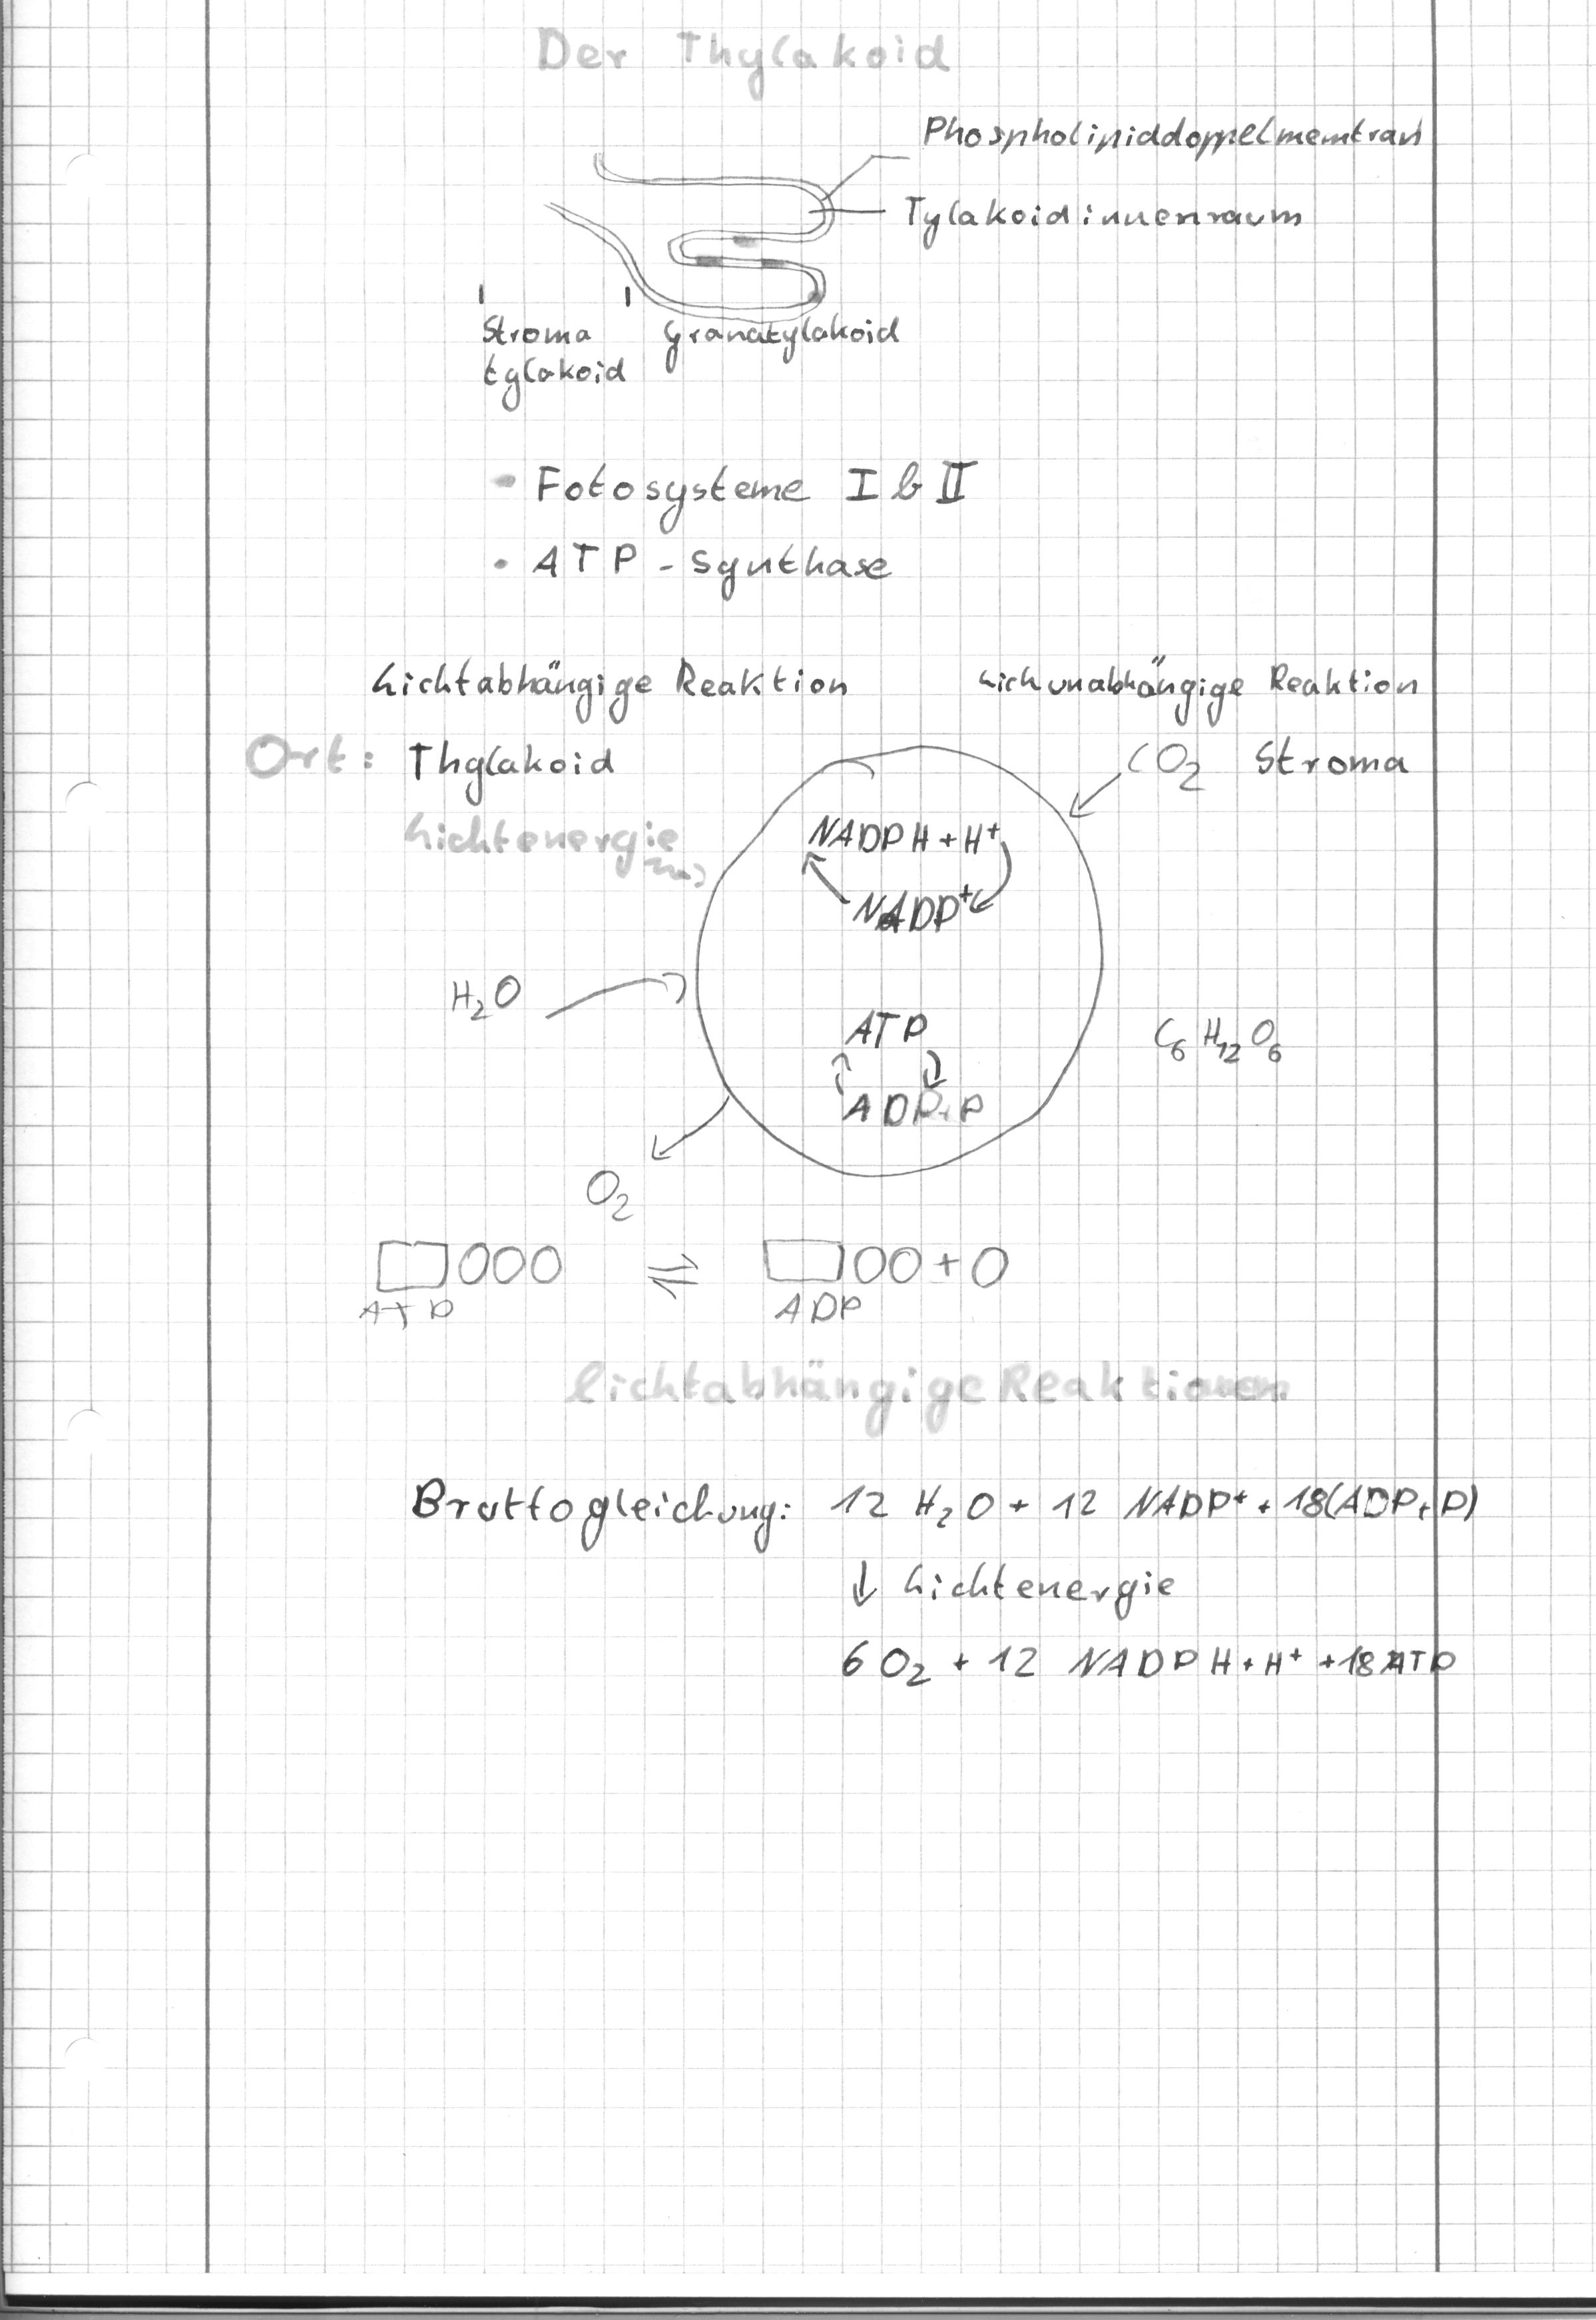 Der Thylakoid
Phospholipiddoppelmembran
Tylakoidinnenraum
Stroma
tylakoid
Granatylakoid
Fotosysteme I & II
• ATP - Synthase
Lichtabhängige Reaktion
Lichunabhängige Reaktion
Ort: Thylakoid
CO₂ Stroma
Lichtenergie
NADPH + H⁺
NADP⁺
H₂O
ATP
C₆H₁₂O₆
ADP+P
O₂
OOO ⇌ OO + O
ATP
ADP
Lichtabhängige Reaktionen
Bruttogleichung: 12 H₂O + 12 NADP⁺ + 18(ADP+P)
↓ Lichtenergie
6 O₂ + 12 NADPH + H⁺ + 18 ATP